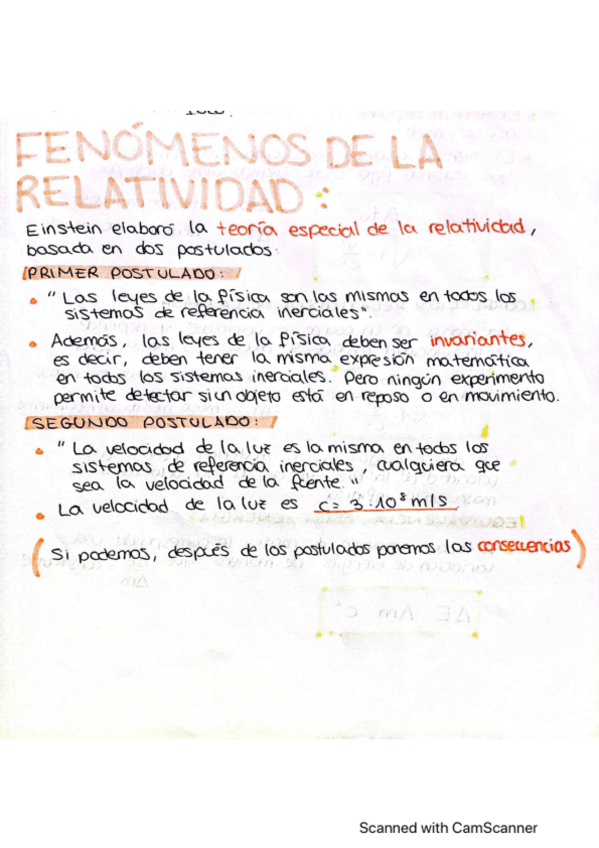 FENÓMENOS DE LA
RELATIVIDAD:
Einstein elaboró la teoría especial de la relatividad,
basada en dos postulados:
PRIMER POSTULADO:
• "Las leyes de la física son las mismas en todos los
sistemas de referencia inerciales".
• Además, las leyes de la física deben ser invariantes,
es decir, deben tener la misma expresión matemática
en todos los sistemas inerciales. Pero ningún experimento
permite detectar si un objeto está en reposo o en movimiento.
SEGUNDO POSTULADO:
• "La velocidad de la luz es la misma en todos los
sistemas de referencia inerciales, cualquiera que
sea la velocidad de la fuente."
• La velocidad de la luz es c = 3·10⁸ m/s.
(Si podemos, después de los postulados ponemos las consecuencias)
ΔE Δm c²
Scanned with CamScanner